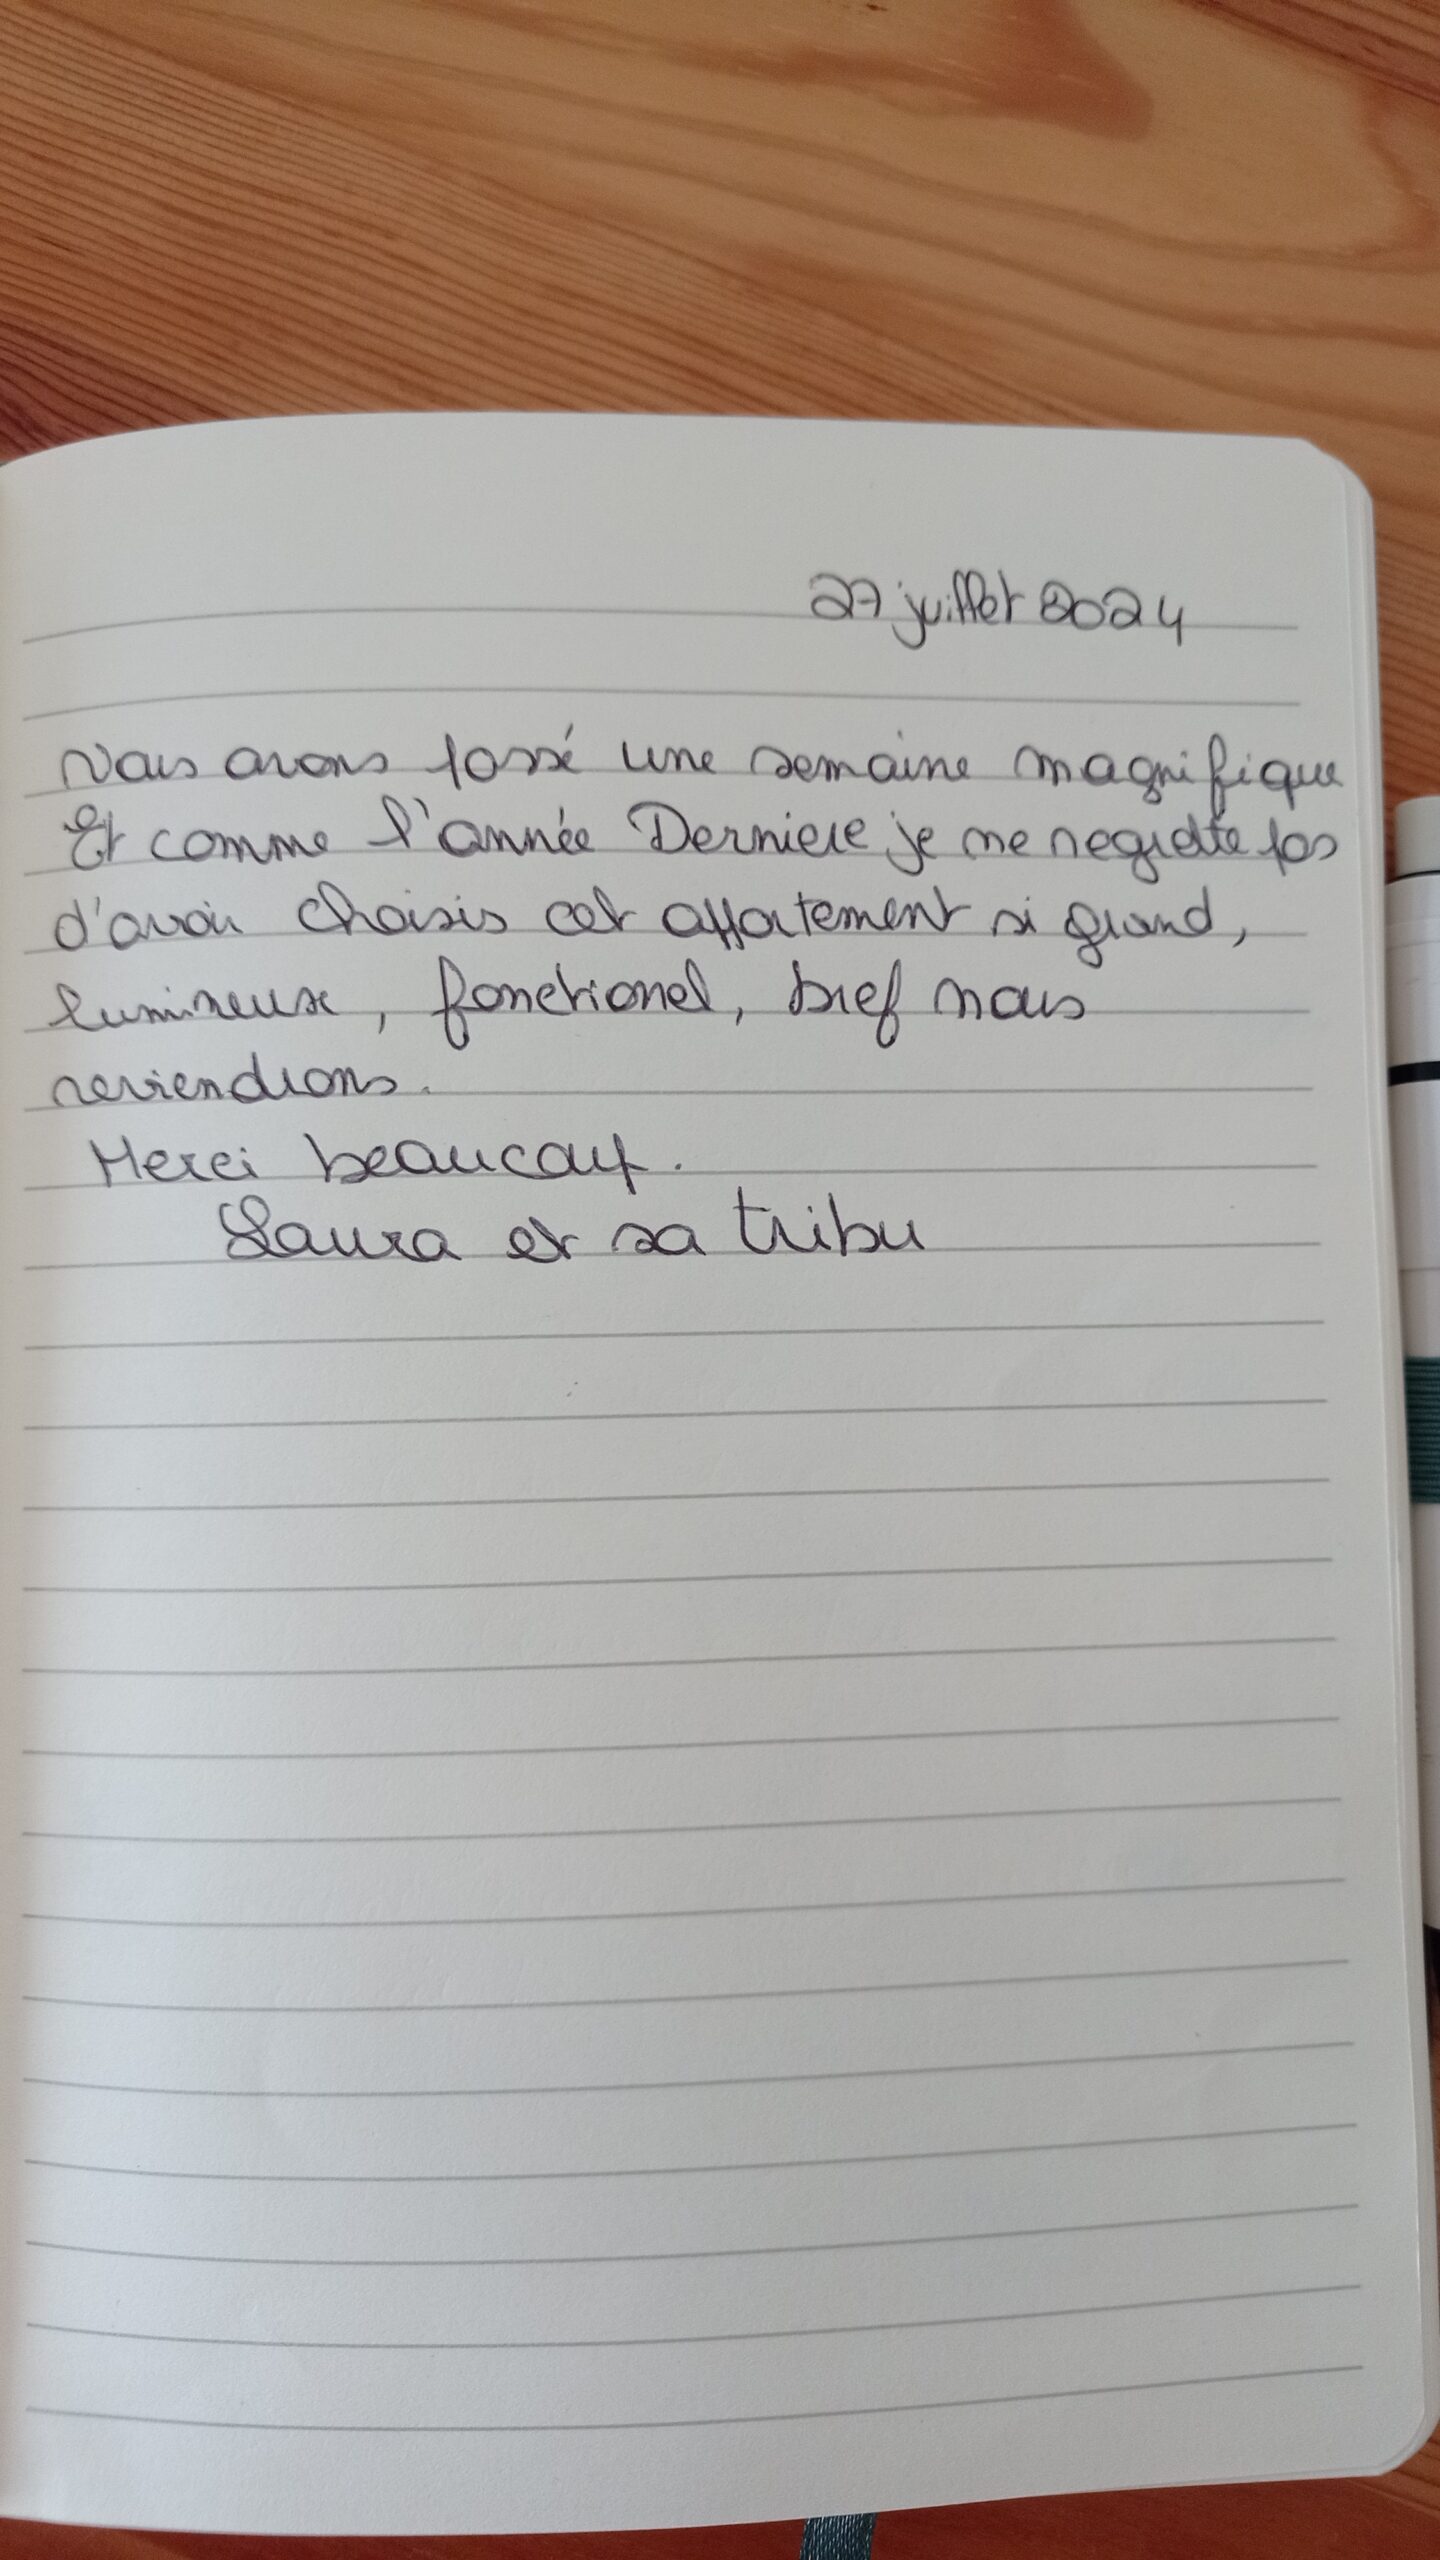 27 juillet 2024
Nous avons passé une semaine magnifique
Et comme l'année Derniere je ne regrette pas
d'avoir choisis cet appartement si grand,
lumineux, fonctionel, bref nous
reviendrons.
Merci beaucoup.
Laura et sa tribu